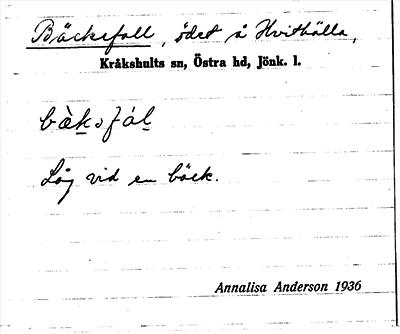 Bäckefall, ödet å Hvithälla,
Kråkshults sn, Östra hd, Jönk. l.
bὲksfál
Låg vid en bäck.
Annalisa Anderson 1936